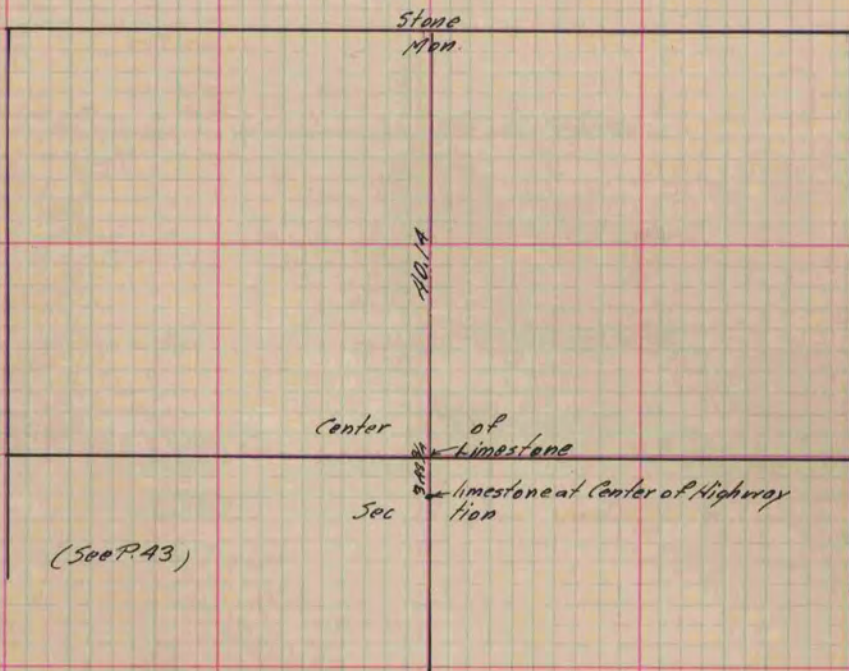 Stone
Mon.
40.14
Center of
Limestone
limestone at Center of Highway
Section
(See P. 43)